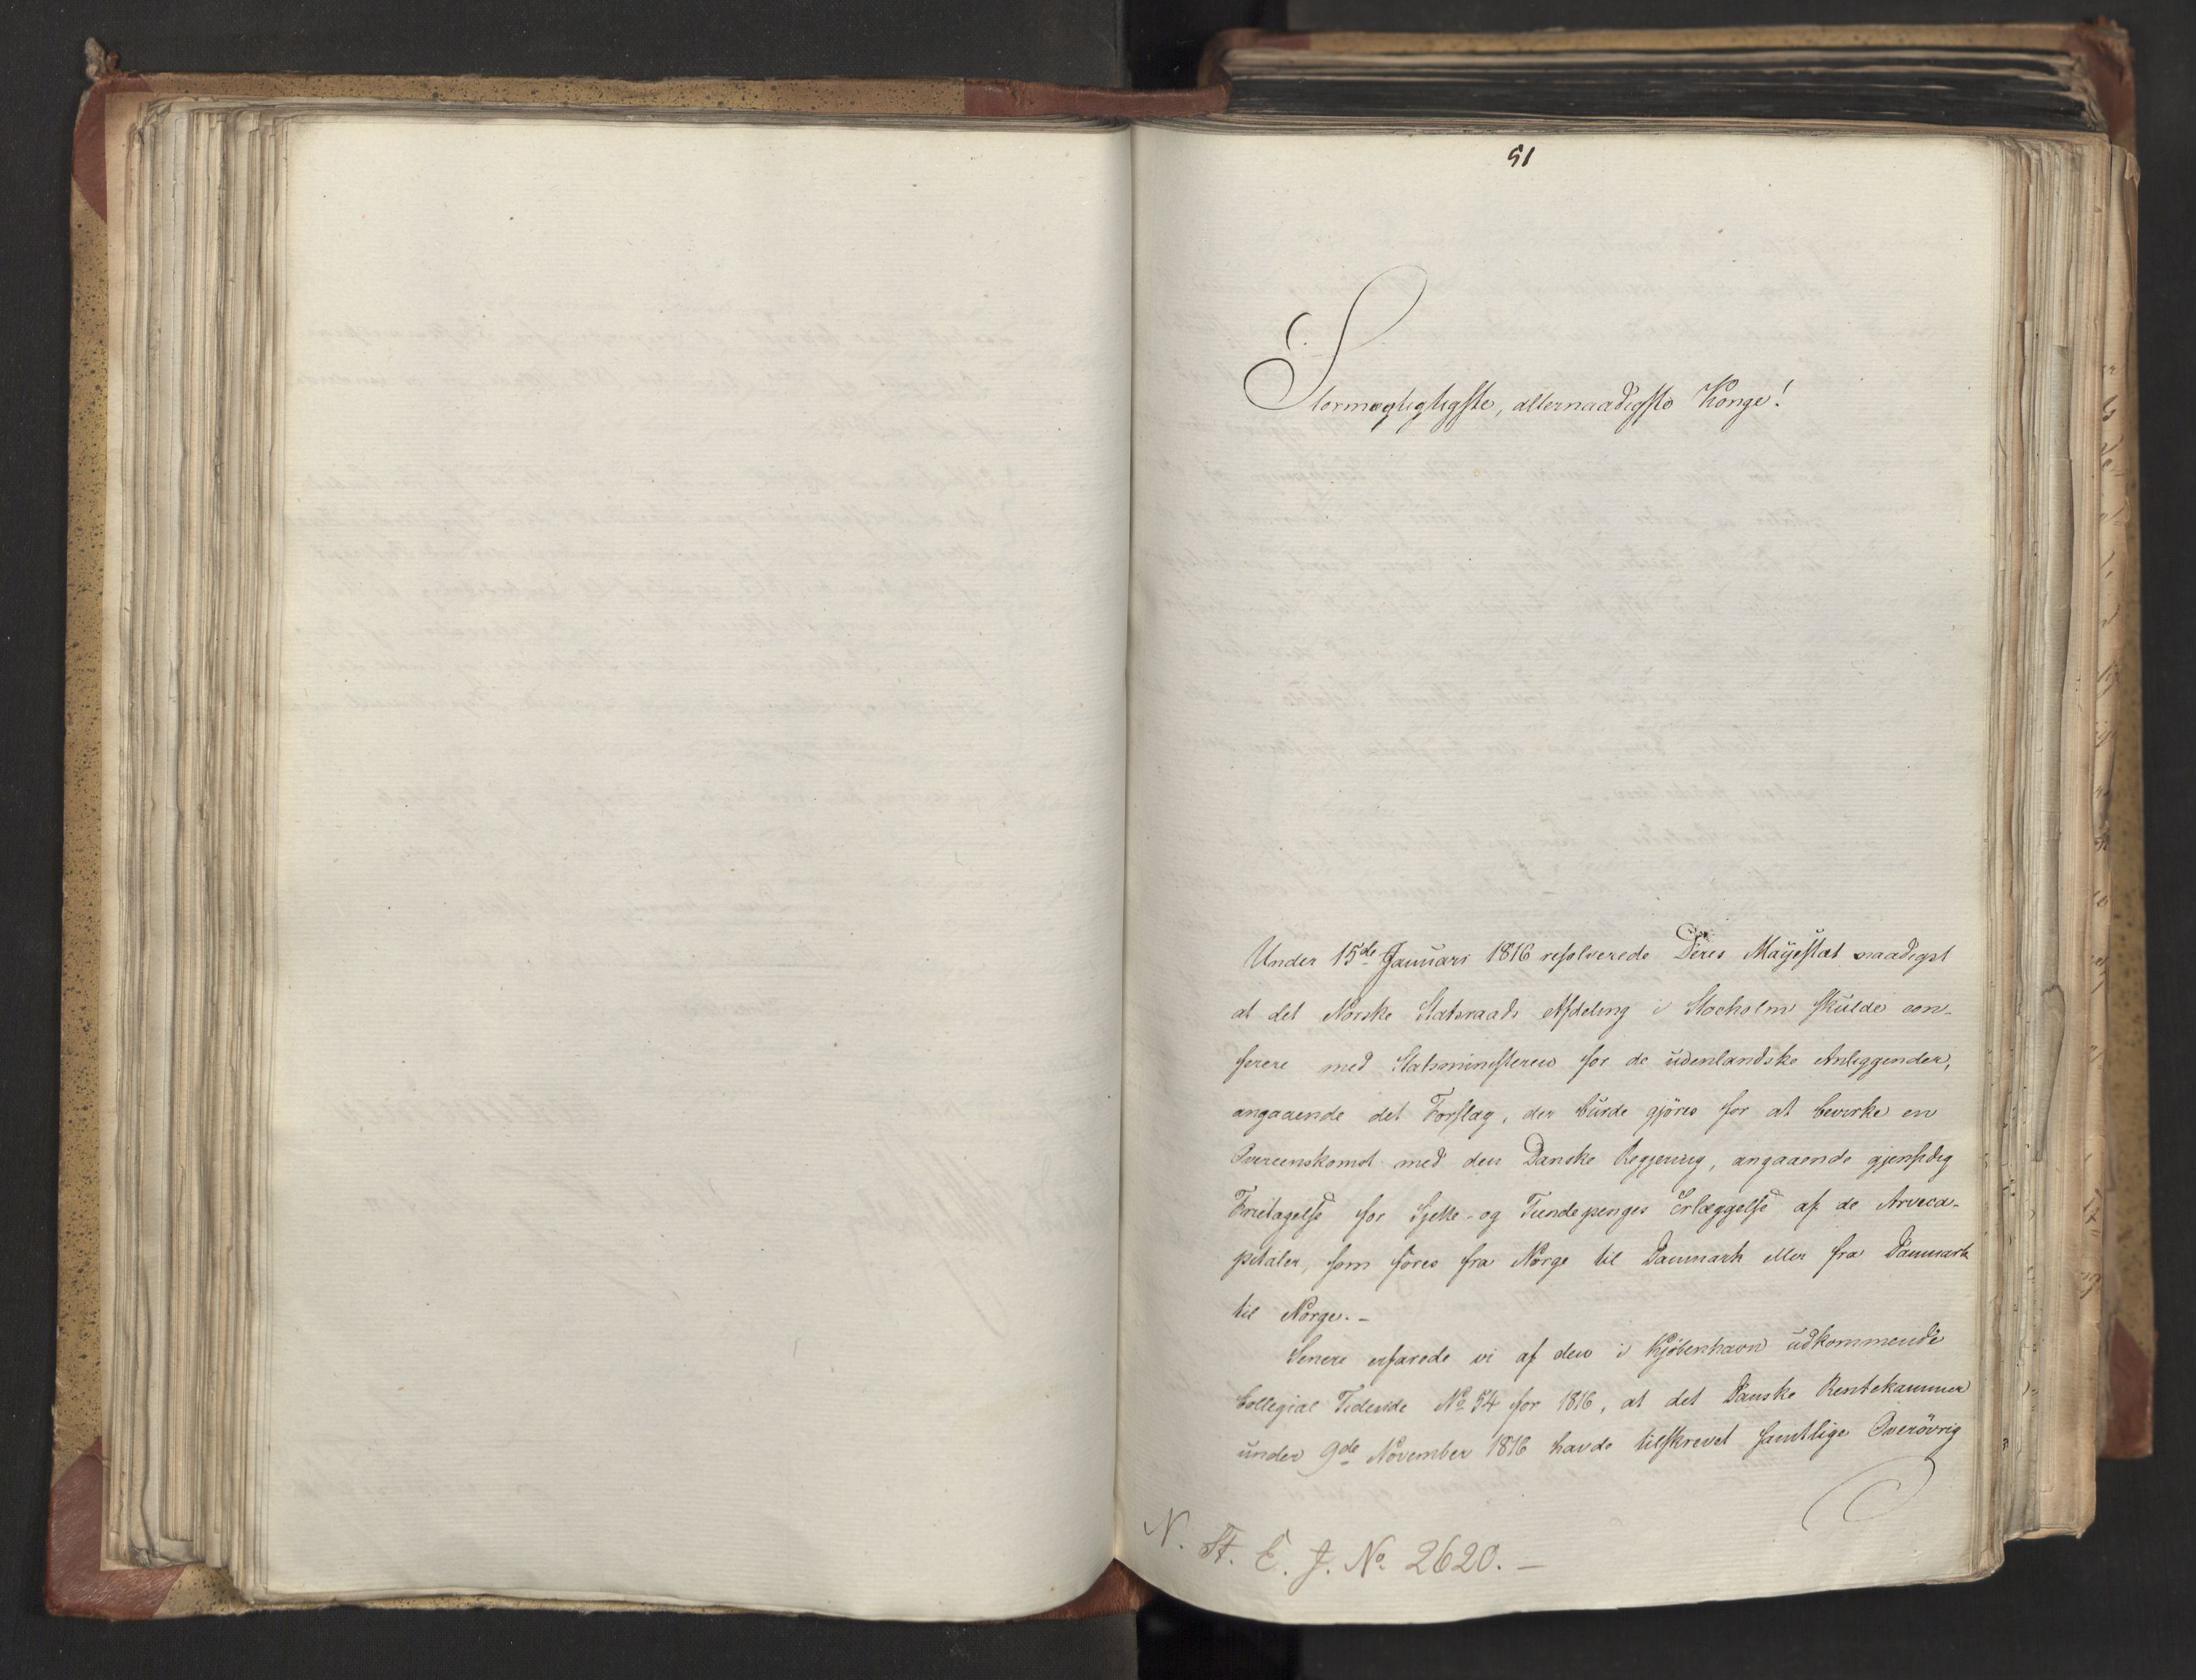 51
Stormægtigtigste, allernaadigste Konge!
Under 15de Januari 1816 resolverede Deres Mayestæt naadigst
at det Norske Statsraads Afdeling i Stocholm skulde con-
ferere med Statsministeren for de udenlandske Anliggender,
angaaende det Forslag, der burde gjöres for at bevirke en
Overeenskomst med den Danske Regjering, angaaende gjensidig
Fritagelse for Sjette- og Tiendepenges Erlæggelse af de Arveca-
pitaler, som föres fra Norge til Danmark eller fra Danmark
til Norge. -
Senere erfarede vi af den i Kjöbenhavn udkommende
Collegial Tidende No 54 for 1816, at det Danske Rentekammer
under 9de November 1816 havde tilskrevet samtlige Överövrig
N. St. E. J. No. 2620. -